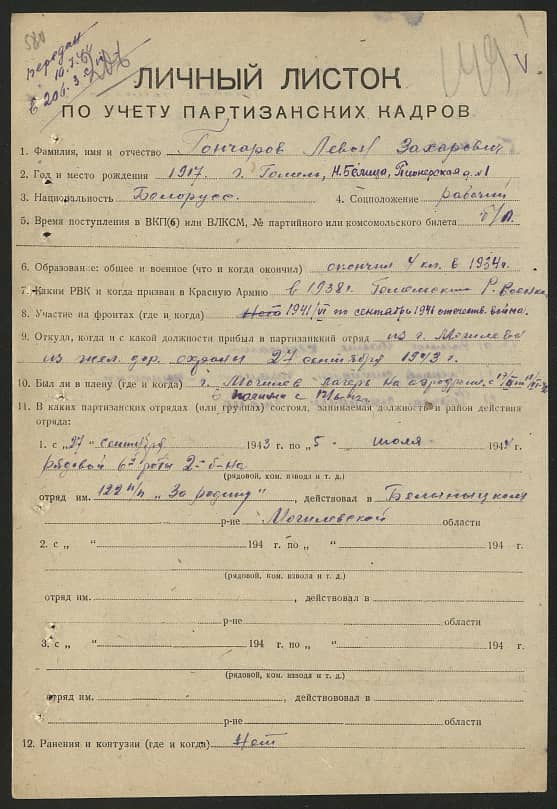 передан
ЛИЧНЫЙ ЛИСТОК
ПО УЧЕТУ ПАРТИЗАНСКИХ КАДРОВ
1. Фамилия, имя и отчество Гончаров Левон Захарович
2. Год и место рождения 1917 г. Гомель, Н. Белица, Пионерская д. №1
3. Национальность Белорусс. 4. Соцположение рабочий
5. Время поступления в ВКП(б) или ВЛКСМ, № партийного или комсомольского билета б/п.
6. Образование: общее и военное (что и когда окончил) окончил 4 кл. в 1934г.
7. Каким РВК и когда призван в Красную Армию в 1938г. Гомельским Р.
8. Участие на фронтах (где и когда) 1941/VI по сентябрь 1941 отечеств. война.
9. Откуда, когда и с какой должности прибыл в партизанский отряд из г. Могилева
из жел. дор. охраны 27 сентября 1943 г.
10. Был ли в плену (где и когда) г. Могилев лагерь на аэродроме с
11. В каких партизанских отрядах (или группах) состоял, занимаемая должность и район действия
отряда:
1. с „27“ сентября 1943 г. по „5 “ июля 1944 г.
рядовой 6й роты 2-б-на
(рядовой, ком. взвода и т. д.)
отряд им. 122 п/п „За родину“, действовал в Белыныцком
р-не Могилевской области
2. с „ “ 194 г. по „ “ 194 г.
(рядовой, ком. взвода и т. д.)
отряд им. , действовал в
р-не области
3. с „ “ 194 г. по „ “ 194 г.
(рядовой, ком. взвода и т. д.)
отряд им. , действовал в
р-не области
12. Ранения и контузии (где и когда) Нет